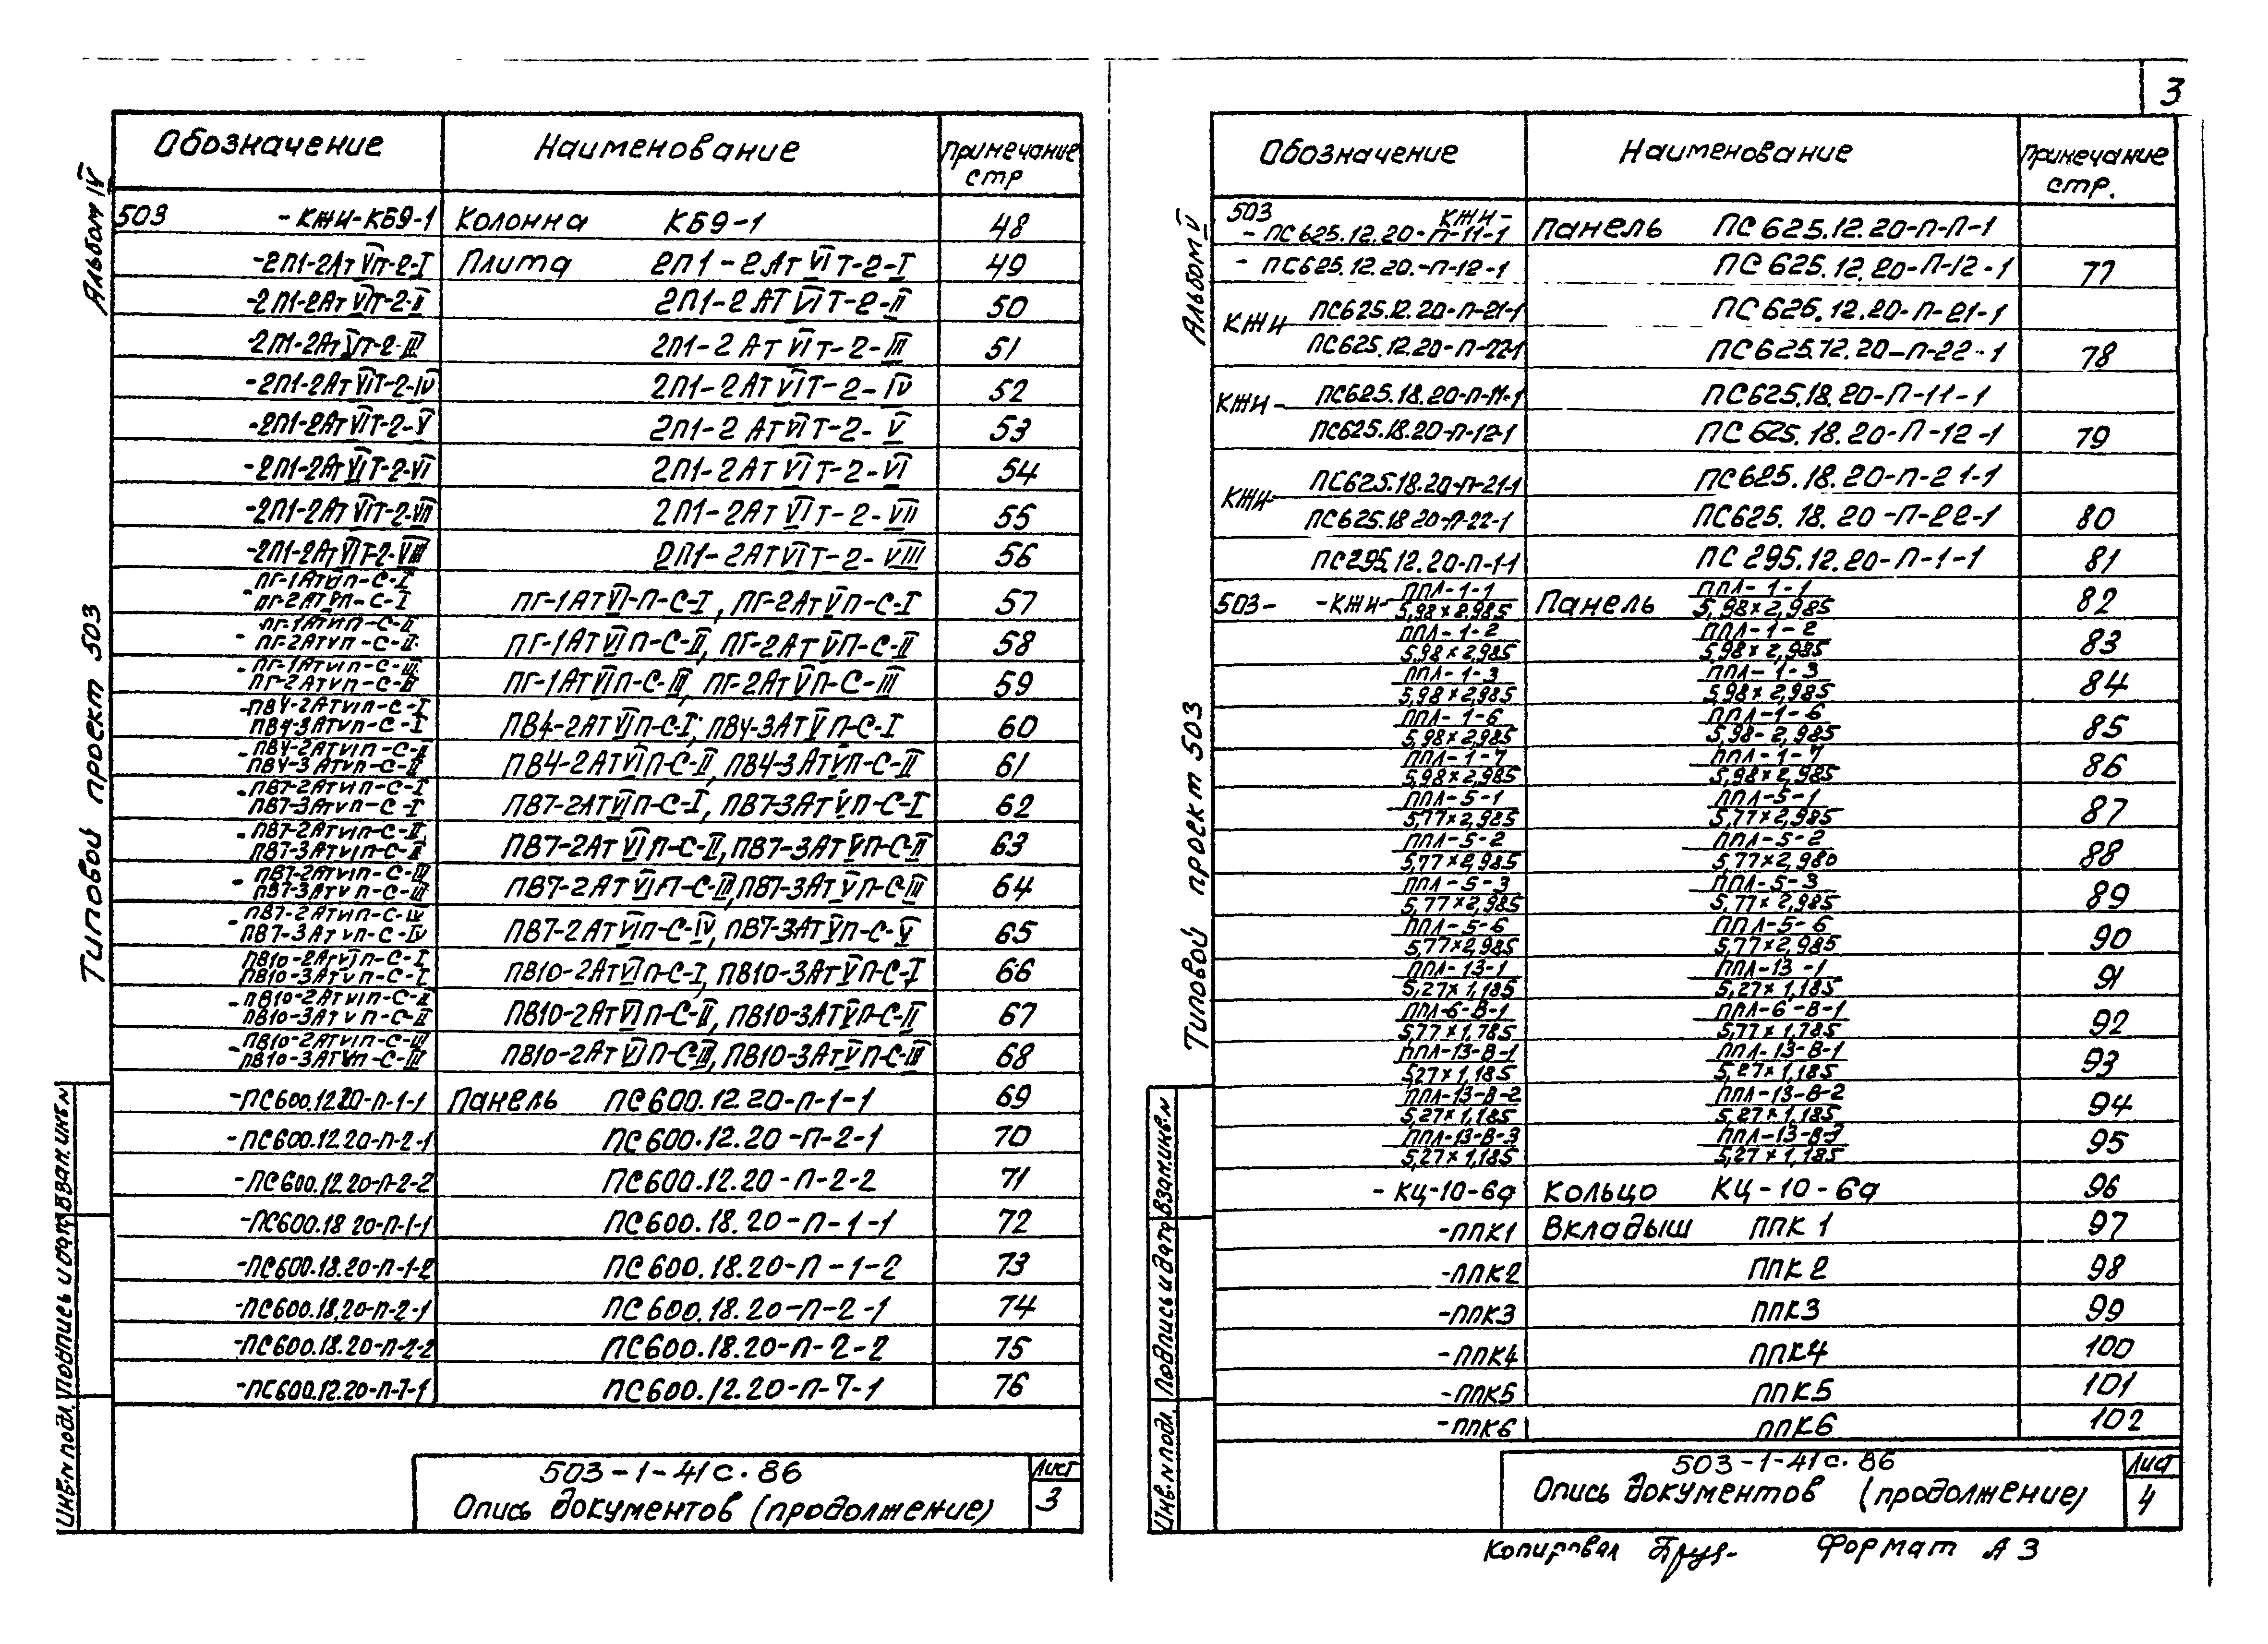 3
Альбом IV
Типовой проект 503
Обозначение Наименование Примечание стр
503 -КЖИ-КБ9-1 Колонна КБ9-1 48
-2П1-2АтVIт-2-I Плита 2П1-2АтVIт-2-I 49
-2П1-2АтVIт-2-II 2П1-2АТVIТ-2-II 50
-2П1-2АтVт-2-III 2П1-2АтVIт-2-III 51
-2П1-2АтVIт-2-IV 2П1-2АтVIТ-2-IV 52
-2П1-2АтVIт-2-V 2П1-2АтVIТ-2-V 53
-2П1-2АтVIт-2-VI 2П1-2АтVIТ-2-VI 54
-2П1-2АтVIт-2-VII 2П1-2АтVIт-2-VII 55
-2П1-2АтVIт-2-VIII 2П1-2АТVIТ-2-VIII 56
-ПГ-1АтVIп-С-I
ПГ-2АтVп-С-I ПГ-1АТVI-П-С-I, ПГ-2АтVп-С-I 57
ПГ-1АтVIп-С-II
-ПГ-2АтVп-С-II ПГ-1АТVIп-С-II, ПГ-2АтVП-С-II 58
-ПГ-1АтVIп-С-III
ПГ-2АтVп-С-III ПГ-1АтVIп-С-III, ПГ-2АтVП-С-III 59
-ПВ4-2АтVIп-С-I
ПВ4-3АтVп-С-I ПВ4-2АТVIп-С-I; ПВ4-3АТVп-С-I 60
-ПВ4-2АтVIп-С-II
ПВ4-3АтVп-С-II ПВ4-2АТVIп-С-II, ПВ4-3АТVп-С-II 61
-ПВ7-2АтVIп-С-I
ПВ7-3АтVп-С-I ПВ7-2АТVIп-С-I, ПВ7-3АтVп-С-I 62
-ПВ7-2АтVIп-С-II,
ПВ7-3АтVIп-С-II ПВ7-2АтVIп-С-II, ПВ7-3АтVп-С-II 63
-ПВ7-2АтVIп-С-III
ПВ7-3АтVп-С-III ПВ7-2АтVIп-С-III, ПВ7-3АтVп-С-III 64
-ПВ7-2АтVIп-С-IV
ПВ7-3АтVп-С-IV ПВ7-2АтVIп-С-IV, ПВ7-3АтVп-С-V 65
ПВ10-2АтVIп-С-I
ПВ10-3АтVп-С-I ПВ10-2АтVIп-С-I, ПВ10-3АтVп-С-I 66
-ПВ10-2АтVIп-С-II
ПВ10-3АтVп-С-II ПВ10-2АтVIп-С-II, ПВ10-3АТVп-С-II 67
-ПВ10-2АтVIп-С-III
ПВ10-3АтVп-С-III ПВ10-2АтVIп-С-III, ПВ10-3АтVп-С-III 68
-ПС600.12.20-п-1-1 Панель ПС600.12.20-п-1-1 69
-ПС600.12.20-п-2-1 ПС600.12.20-П-2-1 70
-ПС600.12.20-п-2-2 ПС600.12.20-п-2-2 71
-ПС600.18 20-п-1-1 ПС600.18.20-п-1-1 72
-ПС600.18.20-п-1-2 ПС600.18.20-п-1-2 73
-ПС600.18.20-п-2-1 ПС600.18.20-п-2-1 74
-ПС600.18.20-п-2-2 ПС600.18.20-п-2-2 75
-ПС600.12.20-п-7-1 ПС600.12.20-п-7-1 76
Инв.N подл. Подпись и дата Взам.инв.N
503-1-41с.86
Опись документов (продолжение)
Лист
3
Альбом IV
Типовой проект 503
Обозначение Наименование Примечание стр.
503 КЖИ-
-ПС625.12.20-П-11-1 Панель ПС625.12.20-п-П-1
-ПС625.12.20.-п-12-1 ПС625.12.20-П-12-1 77
КЖИ ПС625.12.20-п-21-1 ПС625.12.20-п-21-1
ПС625.12.20-п-22-1 ПС625.12.20-п-22-1 78
КЖИ- ПС625.18.20-п-11-1 ПС625.18.20-П-11-1
ПС625.18.20-п-12-1 ПС625.18.20-П-12-1 79
КЖИ- ПС625.18.20-п-21-1 ПС625.18.20-п-21-1
ПС625.18 20-п-22-1 ПС625.18.20-П-22-1 80
ПС295.12.20-п-1-1 ПС295.12.20-П-1-1 81
503- -КЖИ- ППЛ-1-1 Панель ППЛ-1-1 82
5,98×2,985 5,98×2,985
ППЛ-1-2 ППЛ-1-2 83
5,98×2,985 5,98×2,985
ППЛ-1-3 ППЛ-1-3 84
5,98×2,985 5,98×2,985
ППЛ-1-6 ППЛ-1-6 85
5,98×2,985 5,98-2,985
ППЛ-1-7 ППЛ-1-7 86
5,98×2,985 5,98×2,985
ППЛ-5-1 ППЛ-5-1 87
5,77×2,985 5,77×2,985
ППЛ-5-2 ППЛ-5-2 88
5,77×2,985 5,77×2,980
ППЛ-5-3 ППЛ-5-3 89
5,77×2,985 5,77×2,985
ППЛ-5-6 ППЛ-5-6 90
5,77×2,985 5,77×2,985
ППЛ-13-1 ППЛ-13-1 91
5,27×1,185 5,27×1,185
ППЛ-6-В-1 ППЛ-6-В-1 92
5,77×1,785 5,77×1,785
ППЛ-13-В-1 ППЛ-13-В-1 93
5,27×1,185 5,27×1,185
ППЛ-13-В-2 ППЛ-13-В-2 94
5,27×1,185 5,27×1,185
ППЛ-13-В-3 ППЛ-13-В-3 95
5,27×1,185 5,27×1,185
-КЦ-10-6а Кольцо КЦ-10-6а 96
-ППК1 Вкладыш ППК 1 97
-ППК2 ППК 2 98
-ППК3 ППК3 99
-ППК4 ППК4 100
-ППК5 ППК5 101
-ППК6 ППК6 102
Инв.N подл. Подпись и дата Взам.инв.N
503-1-41с.86
Опись документов (продолжение)
Лист
4
Копировал Формат А3